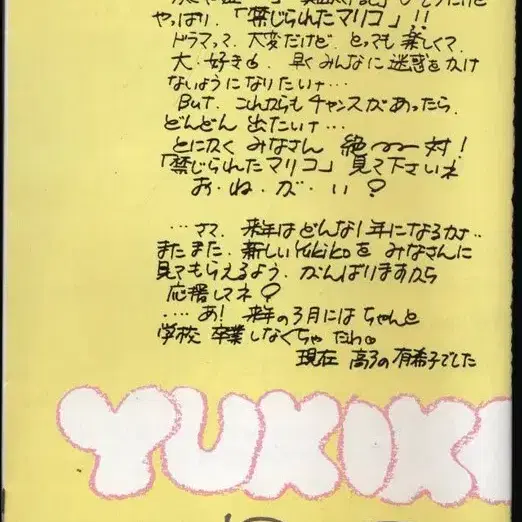 やっぱり、「禁じられたマリコ」!!
ドラマって、大変だけど、とっても楽しくて、
大・好き。早くみんなに迷惑をかけ
ないようになりたいナ…
But、これからもチャンスがあったら、
どんどん出たいナ…
とにかくみなさん 絶〜対!
「禁じられたマリコ」見て下さいネ
お・ね・が・い♡
…さて、来年はどんな1年になるかナ…
またまた、新しいYukikoをみなさんに
見てもらえるよう、がんばりますから
応援してネ♡
‥‥あ! 来年の3月にはちゃんと
学校卒業しなくちゃだわ。
現在 高3の有希子でした
YUKIK